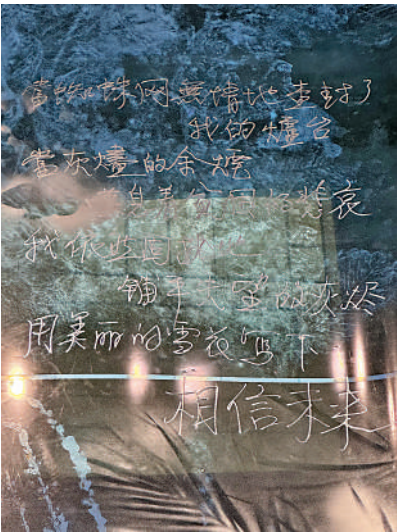 當蜘蛛网無情地查封了
我的爐台
當灰燼的余煙
息着贫困的悲哀
我依然固执地
铺平失望的灰烬
用美丽的雪花写下
相信未来